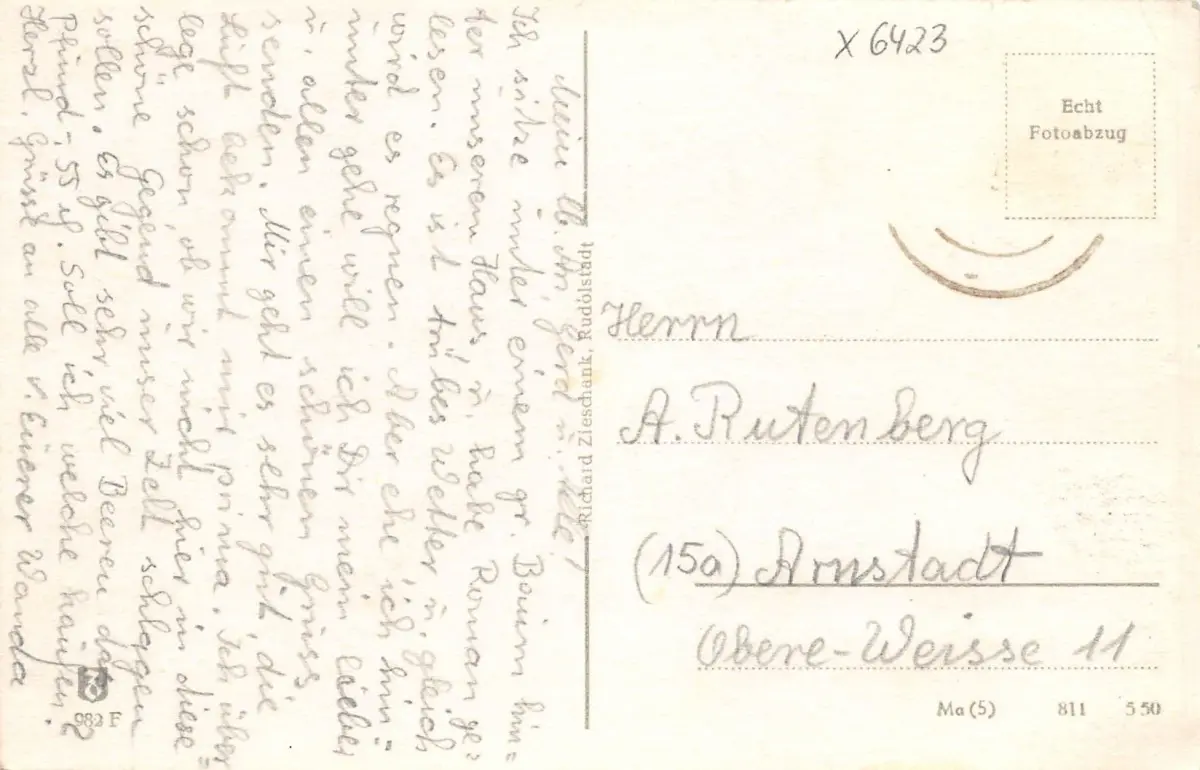 Mein lb. Ar, Gerd u. alle!
Ich sitze unter einem gr. Baum hin=
ter unserem Haus u. habe Roman ge=
lesen. Es ist trübes Wetter u. gleich
wird es regnen. Aber ehe ich hin=
unter gehe will ich Dir mein Lieber
u. allen einen schönen Gruss
senden. Mir geht es sehr gut, die
Luft bekommt mir prima. Ich über=
lege schon, ob wir nicht hier in diese
schöne Gegend unser Zelt schlagen
sollen. Es gibt sehr viel Beeren da,
Pfund -,55 Soll ich welche kaufen?
Herzl. Grüsse an alle v. Euerer Wanda
982 F
Richard Zieschank, Rudolstadt
X 6423
Echt
Fotoabzug
Herrn
A. Rutenberg
(15a) Arnstadt
Obere-Weisse 11
Ma (5) 811 5 50